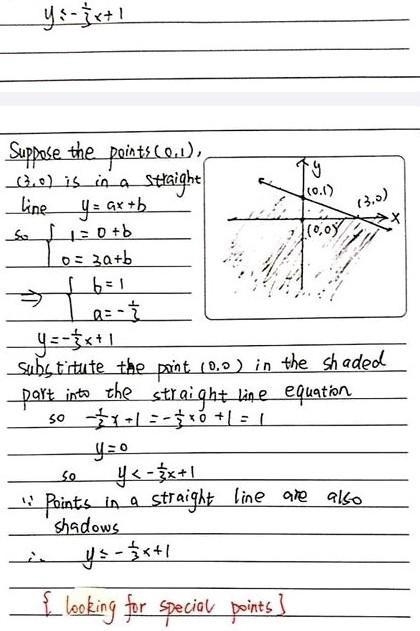 y ≤ -1/3x+1
Suppose the points (0,1),
(3,0) is in a straight
line y=ax+b
so { 1=0+b
0=3a+b
⇒ { b=1
a=-1/3
y=-1/3x+1
y
(0,1)
(3,0)
x
(0,0)
substitute the point (0,0) in the shaded
part into the straight line equation
so -1/3x+1=-1/3×0+1=1
y=0
so y<-1/3x+1
∵ Points in a straight line are also
shadows
∴ y≤-1/3x+1
{ looking for special points }